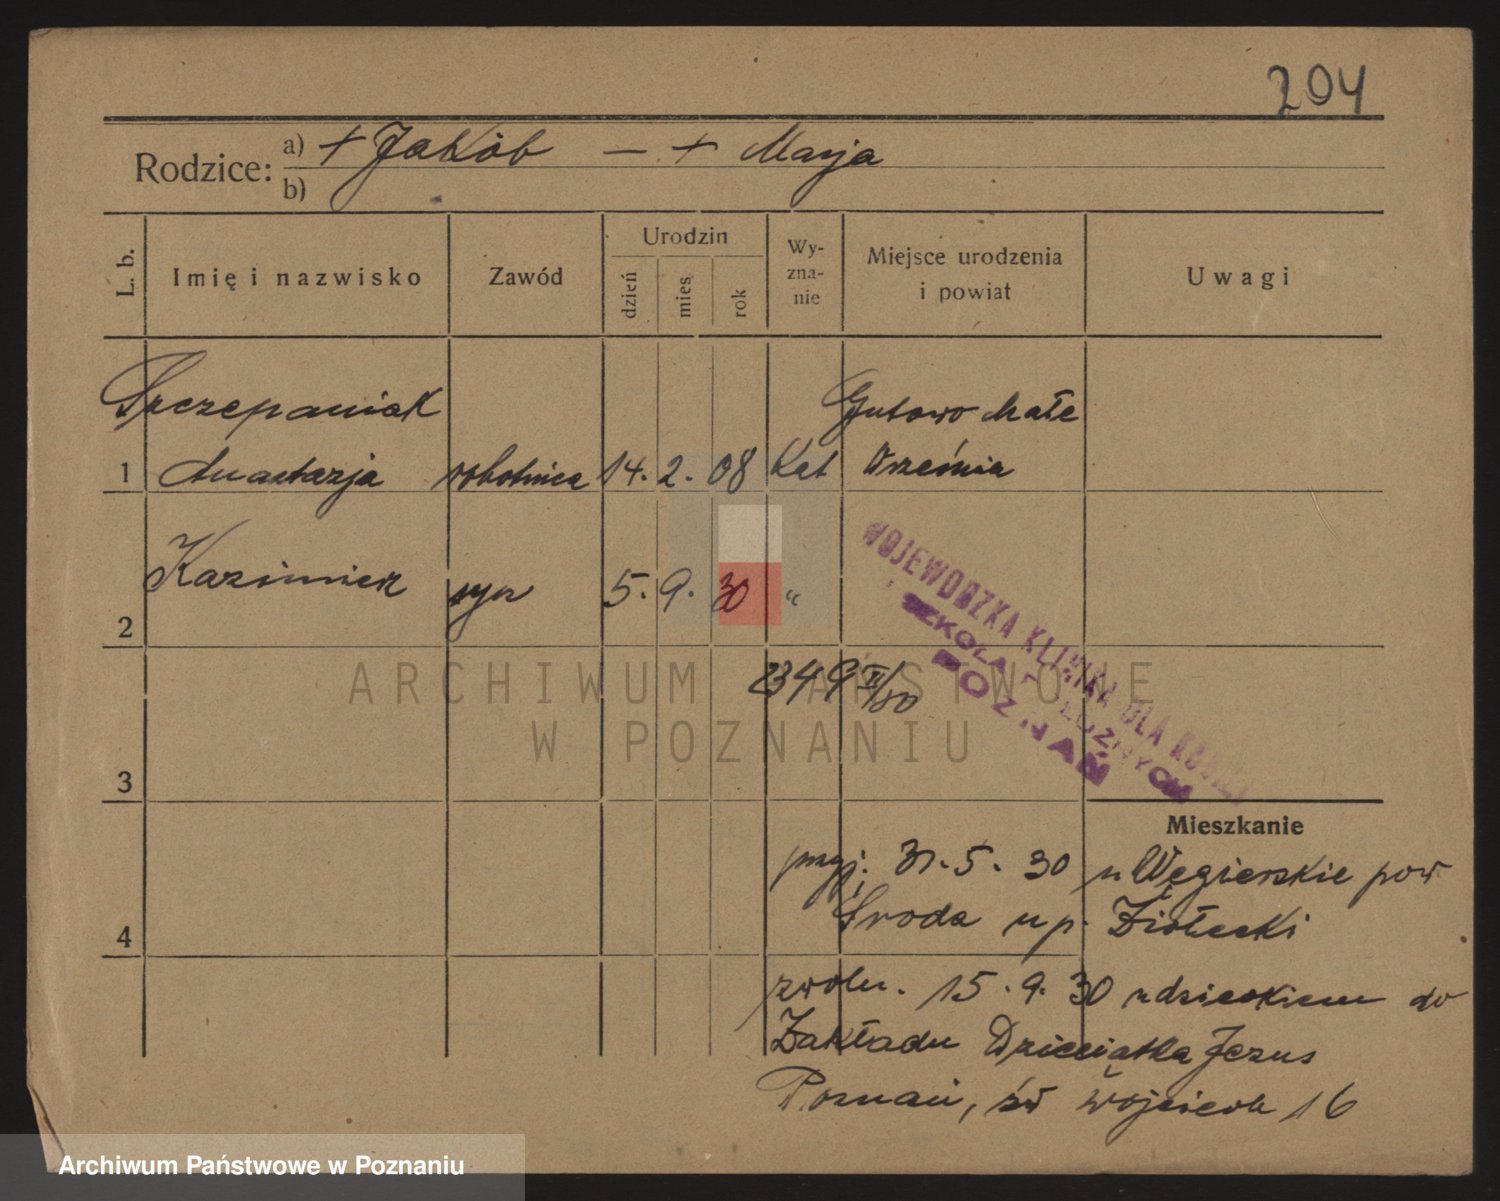 204
Rodzice: a) + Jakób — + Marja
b)
L. b. Imię i nazwisko Zawód Urodzin dzień mies. rok Wy-zna-nie Miejsce urodzenia i powiat Uwagi
Szczepaniak Gutowo Małe
1 Anastazja robotnica 14. 2. 08 Kat Września
2 Kazimierz syn 5. 9. 30 "
WOJEWÓDZKA KLINIKA DLA KOBIET
SZKOŁA POŁOŻNYCH
POZNAŃ
349 II/30
ARCHIWUM PAŃSTWOWE
W POZNANIU
3
Mieszkanie
przyj. 31. 5. 30 u Węgierskie pow
4 Środa u p. Ziołecki
zwoln. 15. 9. 30 z dzieckiem do
Zakładu Dzieciątka Jezus
Poznań, św Wojciech 16
Archiwum Państwowe w Poznaniu